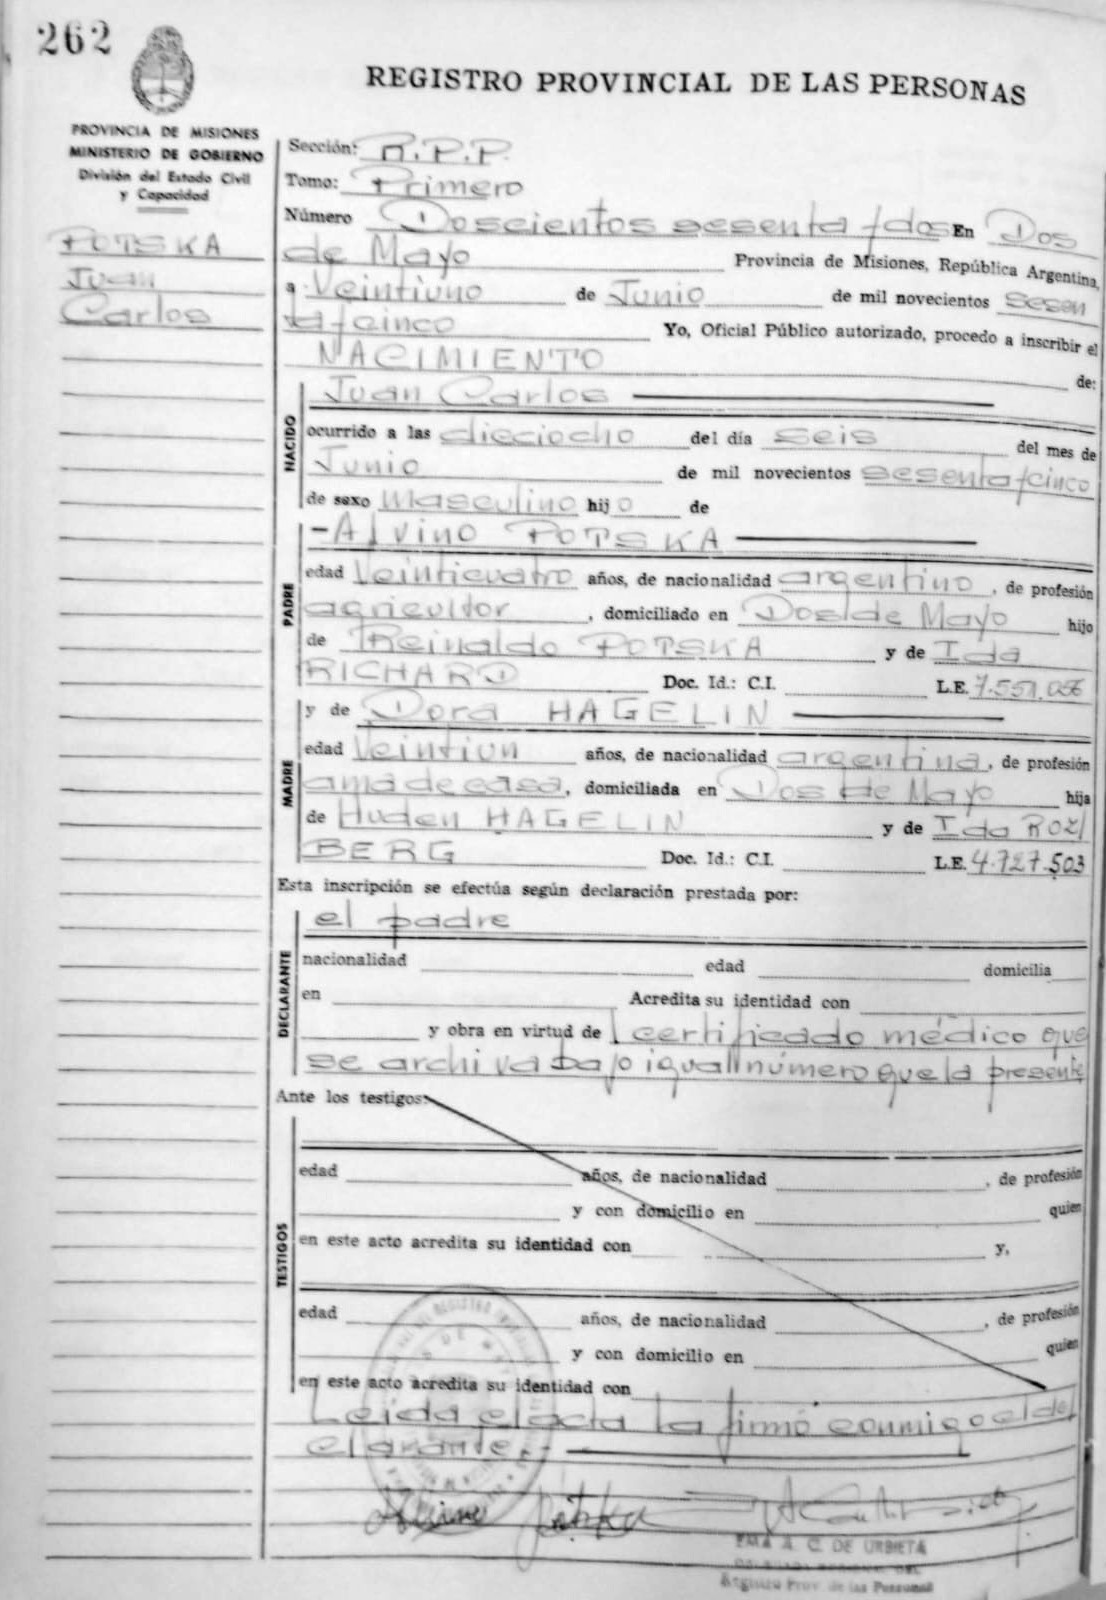 262
REGISTRO PROVINCIAL DE LAS PERSONAS
PROVINCIA DE MISIONES
MINISTERIO DE GOBIERNO
División del Estado Civil
y Capacidad
POTSKA
Juan
Carlos
Sección: R.P.P.
Tomo: Primero
Número Doscientos sesenta y dos En Dos
de Mayo Provincia de Misiones, República Argentina,
a Veintiuno de Junio de mil novecientos sesen
ta y cinco Yo, Oficial Público autorizado, procedo a inscribir el
NACIMIENTO de:
NACIDO
Juan Carlos
ocurrido a las dieciocho del día seis del mes de
Junio de mil novecientos sesenta y cinco
de sexo masculino hijo de
PADRE
- Alvino POTSKA
edad Veinticuatro años, de nacionalidad argentino, de profesión
agricultor, domiciliado en Dos de Mayo hijo
de Reinaldo POTSKA y de Ida
RICHARD Doc. Id.: C.I. L.E. 7.551.056
MADRE
y de Dora HAGELIN
edad Veintiun años, de nacionalidad argentina, de profesión
ama de casa, domiciliada en Dos de Mayo hija
de HAGELIN y de Ida
BERG Doc. Id.: C.I. L.E. 4.727.503
Esta inscripción se efectúa según declaración prestada por:
DECLARANTE
el padre
nacionalidad edad domicilia
en Acredita su identidad con
y obra en virtud de certificado médico que
se archiva bajo igual número que la presente
Ante los testigos:
TESTIGOS
edad años, de nacionalidad , de profesión
y con domicilio en quien
en este acto acredita su identidad con y,
edad años, de nacionalidad , de profesión
y con domicilio en quien
en este acto acredita su identidad con
Leida el acta la firmó conmigo el de
clarante.-
Potska
EMA A. C. DE URBIETA
Registro Prov. de las Personas